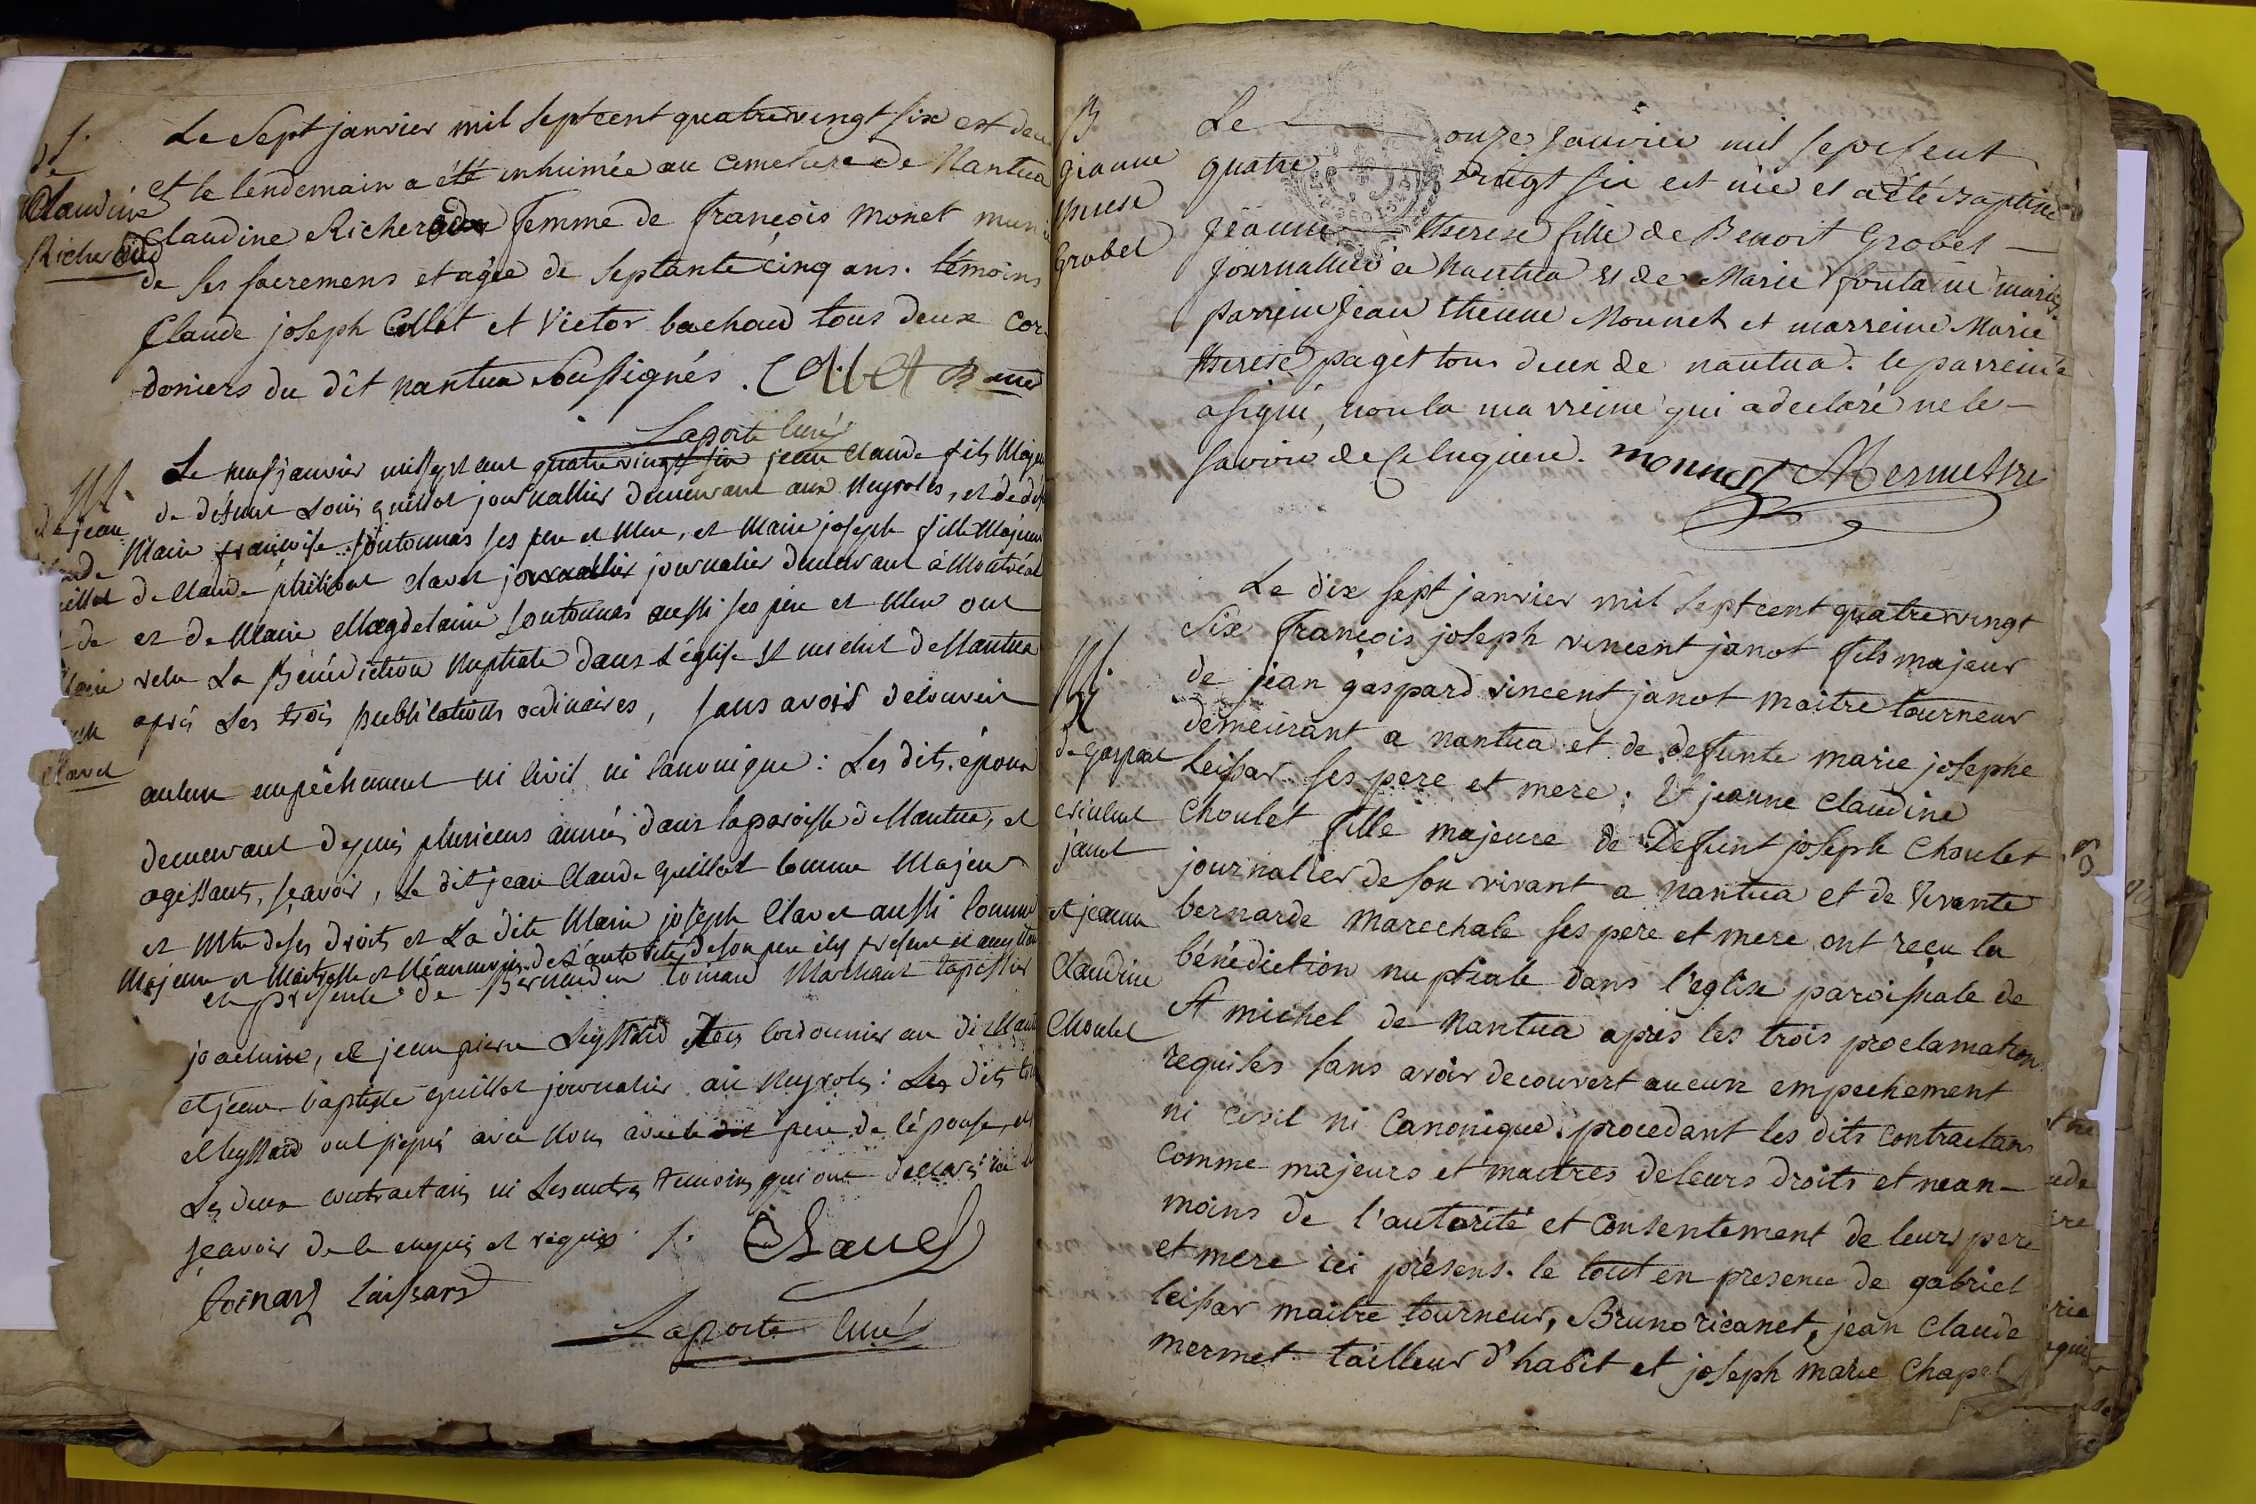 S.
de
Claudine
Richerod
Le Sept janvier mil sept cent quatre vingt six est
et le lendemain a été inhumée au cimetiere de Nantua
Claudine Richerod femme de françois monet munie
de ses sacremens et agée de septante cinq ans. témoins
Claude joseph Collet et Victor bachoud tous deux cor
doniers du dit nantua soussignés. Collet
Laporte Curé
M.
de jean
Claude
guillot
de
Marie
joseph
Clavet
Le neuf janvier mil sept cent quatre vingt six jean Claude fils Majeur
de défunt Louis guillot journallier demeurant aux Neyroles, et de
Marie françoise soutonnas ses pere et Mere, et Marie joseph fille Majeure
de Claude philibert Clavet journalier demeurant à Montréal
et de Marie Magdelaine soutonnas aussi ses pere et Mere ont
reçu La Bénédiction Nuptiale dans L'église St michel de Nantua
après Les trois publications ordinaires, sans avoir découvert
aucun empêchement ni Civil ni Canonique : Les dits époux
demeurant depuis plusieurs années dans la paroisse de Nantua, et
agissants, sçavoir, le dit jean Claude guillot comme Majeur
et Mtre de ses Droits et La dite Marie joseph Clavet aussi comme
Majeure et Maitresse et Néanmoins de L'autorité de son pere icy present
en présence de Bernardin Coinard Marchand tapissier
et jean pierre cordonnier au dit Nantua
et jean-baptiste guillot journalier aux Neyroles : Les dits
ont signé avec Nous avec le pere de l'épouse,
Les deux contractans ni Les autres temoins qui ont déclaré ne
sçavoir de ce enquis et requis S. Clavet
Coinard Laissard
Laporte Curé
B
jeanne
therese
Grobel
Le onze Janvier mil sept cent
quatre vingt six est née et a été Baptisée
jeanne therese fille de Benoit Grobel
journallier a Nantua et de Marie fontaine mariés
parrein jean Etienne Monnet et marreine Marie
therese paget tous deux de nantua. le parrein
a signé, non la marreine qui a declaré ne le
savoir de ce enquise. monnet Mermet
M.
de gaspard
vincent
janot
et jeanne
Claudine
Choulet
Le dix sept janvier mil sept cent quatre vingt
six françois joseph vincent janot fils majeur
de jean gaspard vincent janot maitre tourneur
demeurant a nantua et de defunte marie josephe
leissar ses pere et mere ; et jeanne claudine
Choulet fille majeure de Defunt joseph Choulet
journalier de son vivant a nantua et de vivante
bernarde marechale ses pere et mere ont reçu la
bénédiction nuptiale dans l'eglise paroissiale de
St michel de Nantua après les trois proclamations
requises sans avoir decouvert aucun empechement
ni civil ni Canonique. procedant les dits contractans
comme majeurs et maitres de leurs droits et nean-
moins de l'autorité et consentement de leurs pere
et mere ici présens. le tout en presence de gabriel
leissar maitre tourneur, Bruno ricanet, jean Claude
mermet tailleur d'habit et joseph marie Chapel